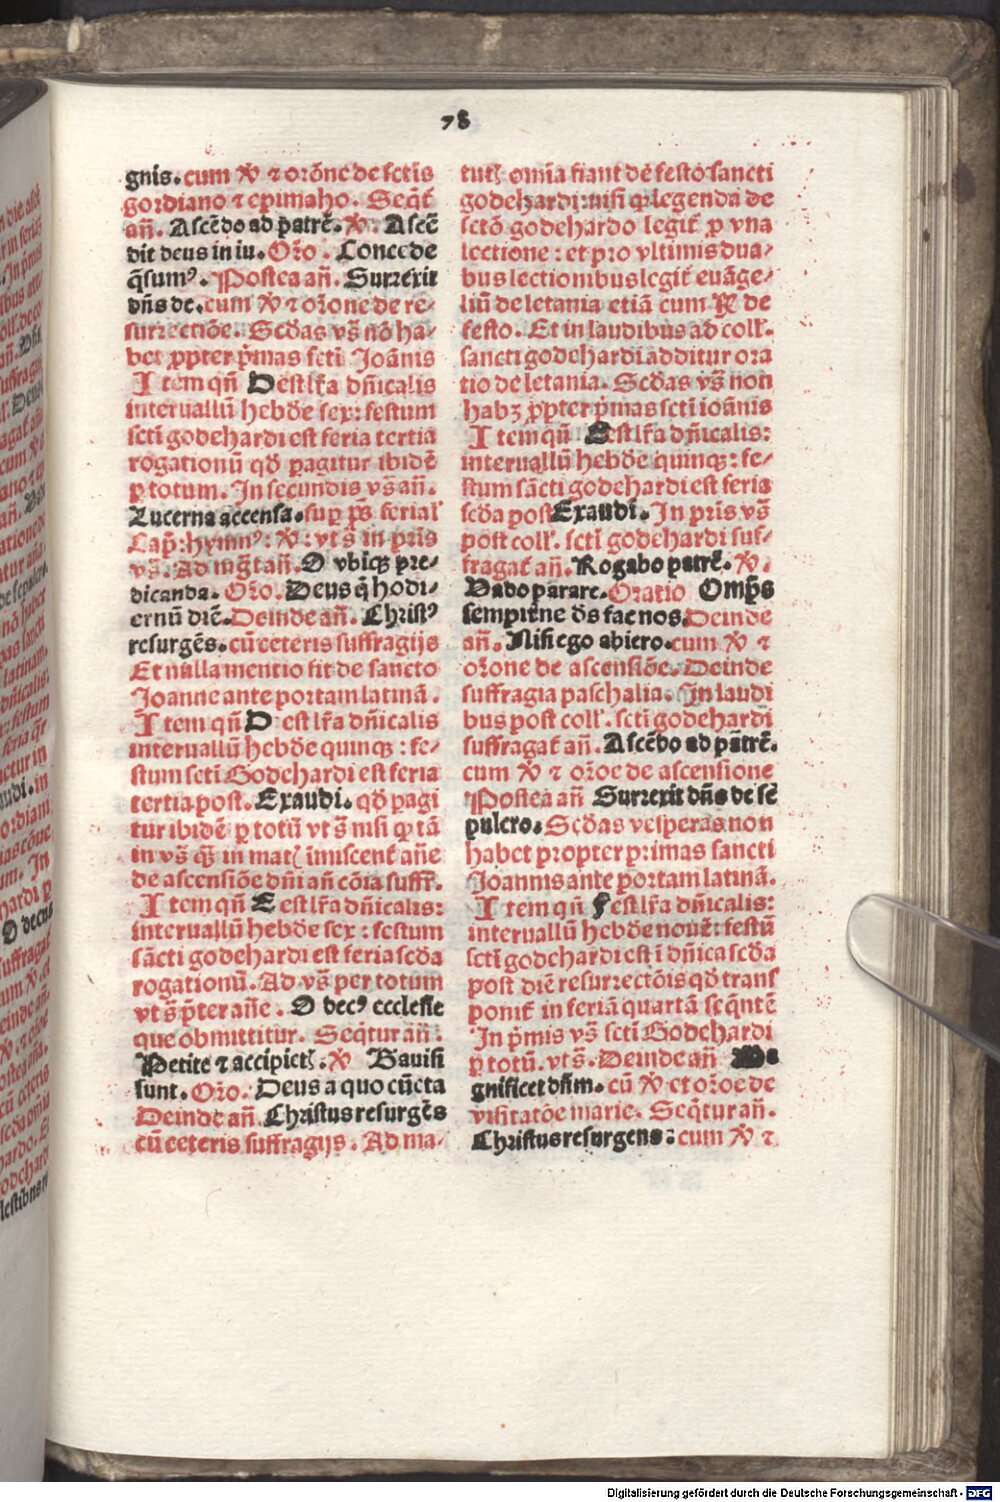 78
gnis. cum ℣ ⁊ orōne de sctis
gordiano ⁊ epimaho. Seqt̄
an̄. Ascēdo ad patrē. ℣. Ascē
dit deus in iu. Oro. Concede
q̄sumꝰ. Postea an̄. Surrexit
dn̄s de. cum ℣ ⁊ orōne de re-
surrectiōe. Scd̄as vs̄ nō ha-
bet ꝓpter pͥmas scti Joānis
Item qn̄ D est lr̄a dn̄icalis
interuallū hebd̄e sex: festum
scti godehardi est feria tertia
rogationū qd̄ ꝑagitur ibidē
ꝑ totum. In secundis vs̄ an̄.
Lucerna accensa. sup ps̄ ferial'
Cap: hymnꝰ: ℣: vts̄ in pris
vs̄. Ad mḡt an̄. O vbiqꝫ pre-
dicanda. Oro. Deus q̄ hodi-
ernū diē. Deinde an̄. Christꝰ
resurgēs. cū ceteris suffragijs
Et nulla mentio fit de sancto
Joanne ante portam latinā.
Item qn̄ D est lr̄a dn̄icalis
interuallū hebd̄e quinqꝫ: fe-
stum scti Godehardi est feria
tertia post. Exaudi. qd̄ ꝑagi
tur ibidē ꝑ totū vts̄ nisi ꝙ tā
in vs̄ qꝫ in matꝭ imiscent̄ an̄e
de ascensiōe dn̄i an̄ cōia suffr̄.
Item qn̄ E est lr̄a dn̄icalis:
interuallū hebd̄e sex: festum
sācti godehardi est feria scd̄a
rogationū. Ad vs̄ per totum
vts̄ pͥter an̄e. O decꝰ ecclesie
que obmittitur. Seqtur an̄:
Petite ⁊ accipietꝭ. ℣ Gauisi
sunt. Oro: Deus a quo cūcta
Deinde an̄. Christus resurgēs
cū ceteris suffragijs. Ad ma-
tutꝭ omīa fiant de festo sancti
godehardi: nisi ꝙ legenda de
sctō godehardo legit̄ ꝑ vna
lectione: et pro vltimis dua-
bus lectionibus legit̄ euāge-
liū de letania etiā cum ℟ de
festo. Et in laudibus ad coll'.
sancti godehardi additur ora
tio de letania. Scd̄as vs̄ non
habꝫ ꝓpter pͥmas scti ioānis
Item qn̄ E est lr̄a dn̄icalis:
interuallū hebd̄e quinqꝫ: fe-
stum sācti godehardi est feria
scd̄a post Exaudi. In pris vs̄
post coll'. scti godehardi suf-
fragat̄ an̄. Rogabo patrē. ℣.
Vado parare. Oratio Omps̄
sempitne ds̄ fac nos. Deinde
an̄. Nisi ego abiero. cum ℣ ⁊
orōne de ascensiōe. Deinde
suffragia paschalia. In laudi
bus post coll'. scti godehardi
suffragat̄ an̄. Ascēdo ad pātrē.
cum ℣ ⁊ oroe de ascensione
Postea an̄ Surrexit dn̄s de sē
pulcro. Scd̄as vesperas non
habet propter primas sancti
Joannis ante portam latinā.
Item qn̄ F est lr̄a dn̄icalis:
interuallū hebd̄e nouē: festū
scti godehardi est ī dn̄ica scd̄a
post diē resurrectōis qd̄ trans
ponit̄ in feriā quartā seq̄ntē
In pͥmis vs̄ scti Godehardi
ꝑ totū. vts̄. Deinde an̄ Ma
gnificet dn̄m. cū ℣ et oroe de
visitatōe marie. Seqtur an̄.
Christus resurgens: cum ℣ ⁊
Digitalisierung gefördert durch die Deutsche Forschungsgemeinschaft - DFG